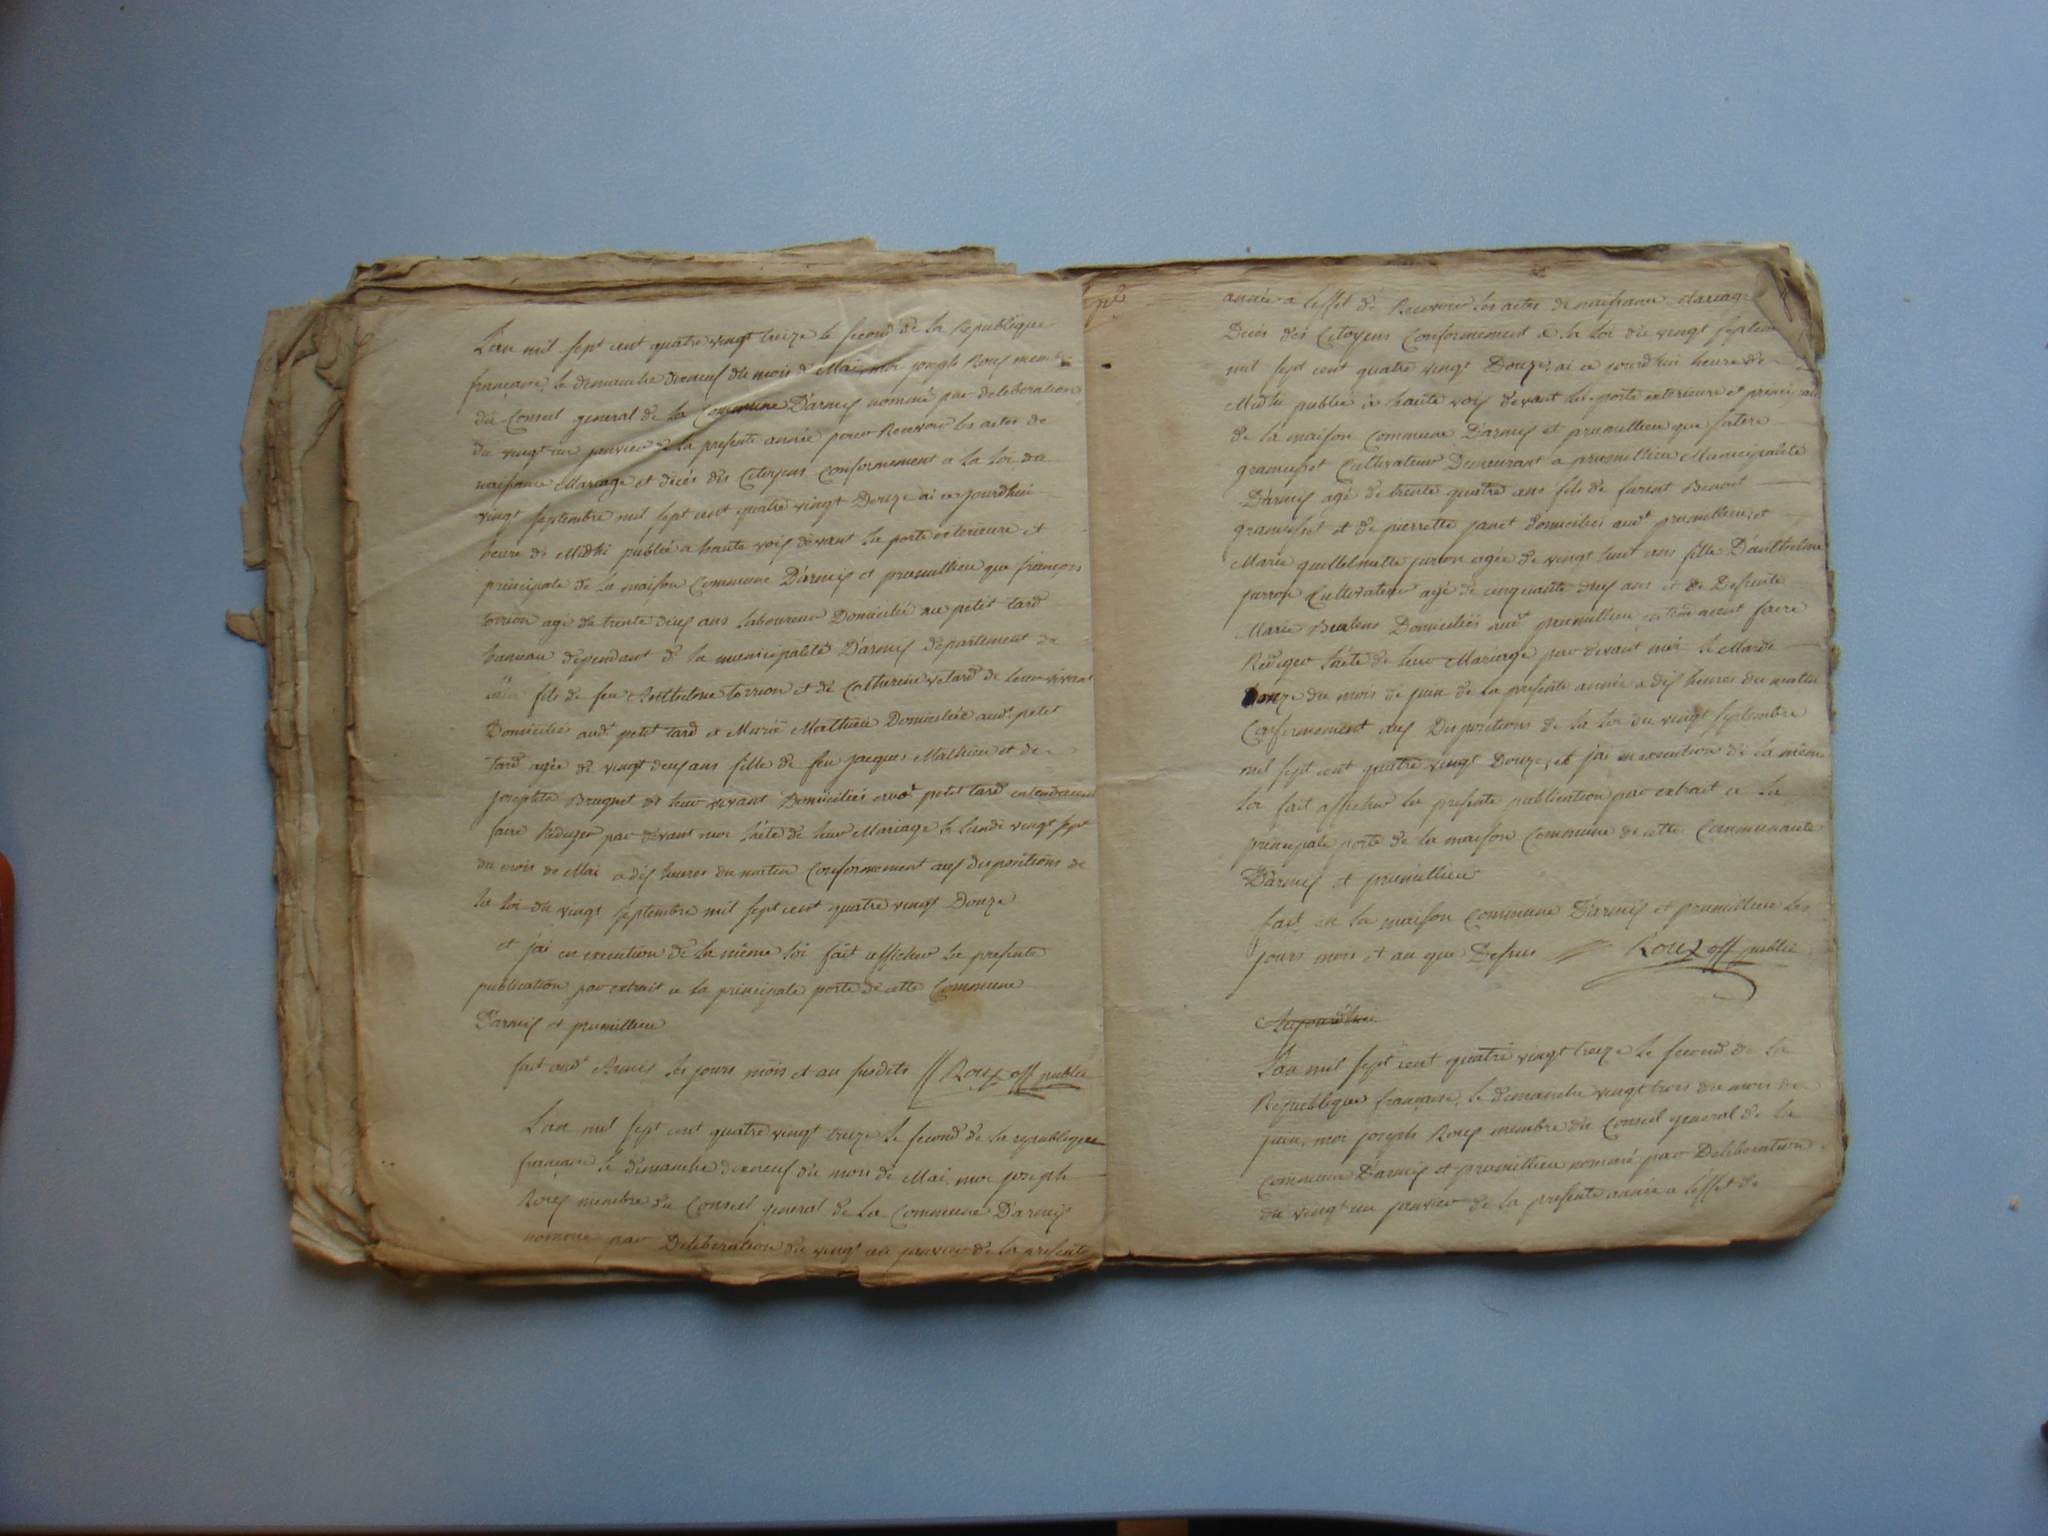 L'an mil sept cent quatre vingt treize le second de la republique
françaive, le dimanche dixneuf du mois de Mai, moi joseph Roux membre
du Conseil general de la Commune D'armix nommé par deliberation
du vingt un janvier de la presente année pour Recevoir les actes de
naissance Mariage et décés des Citoyens Conformement a la loi du
vingt septembre mil sept cent quatre vingt Douze ai ce jourdhui
heure de Midhi publié a haute voix devant la porte exterieure et
principale de la maison Commune D'armix et prémillieu que françois
torrion agé de trente deux ans laboureur Domicilié au petit tard
hameau dependant de la municipalité D'armix departement de
fils de feu Anthelme torrion et de Catherine de leur vivant
Domiciliés audt petit tard et Marie Mathieu Domiciliée audt petit
tard agée de vingt deux ans fille de feu jacques Mathieu et de
josephte Brognet de leur vivant Domiciliés audt petit tard entendaient
faire Rediger par devant moi l'acte de leur Mariage le lundi vingt sept
du mois de Mai a dix heures du matin Conformement aux dispositions de
la loi du vingt septembre mil sept cent quatre vingt Douze
et j'ai en execution de la même loi fait afficher la presente
publication par extrait a la principale porte de cette Commune
D'armix et prémillieu
fait audt Armix les jours mois et an susdits // Roux off public
L'an mil sept cent quatre vingt treize le second de la republique
françaive le dimanche dixneuf du mois de Mai, moi joseph
Roux membre du Conseil general de la Commune D'armix
nommé par Deliberation du vingt un janvier de la presente
année a l'effet de Recevoir les actes de naissance Mariage
Décés des Citoyens Conformement a la loi du vingt septem
mil sept cent quatre vingt Douze, ai ce jourd'hui heure de
Midhi publié à haute voix devant la porte exterieure et principale
de la maison Commune D'armix et prémillieu que
Cultivateur Demeurant a prémillieu Municipalité
D'armix agé de trente quatre ans fils de Benoit
et de pierrette janet domiciliés audt prémillieu, et
Marie juvron agée de vingt huit ans fille D'anthelme
juvron Cultivateur agé de cinquante deux ans et de Defunte
Marie Domiciliés audt prémillieu faire
Rediger l'acte de leur Mariage par devant moi le Mardi
onze du mois de juin de la presente année a dix heures du matin
Conformement aux Dispositions de la loi du vingt septembre
mil sept cent quatre vingt Douze, et j'ai en execution de la même
loi fait afficher la presente publication par extrait a la
principale porte de la maison Commune de cette Communauté
D'armix et prémillieu
fait en la maison Commune D'armix et prémillieu les
jours mois et an que Dessus // Roux off public
Aujourd'hui
L'an mil sept cent quatre vingt treize le second de la
Republique françaive, le dimanche vingt trois du mois de
juin, moi joseph Roux membre du Conseil general de la
Commune D'armix et prémillieu nommé par Deliberation
du vingt un janvier de la presente année a l'effet de